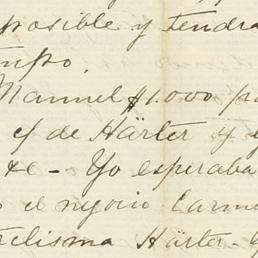 posible y tendra
Manuel $1.000 pa
y de Härter y
&c - Yo esperaba
el negocio Carme
Härter -